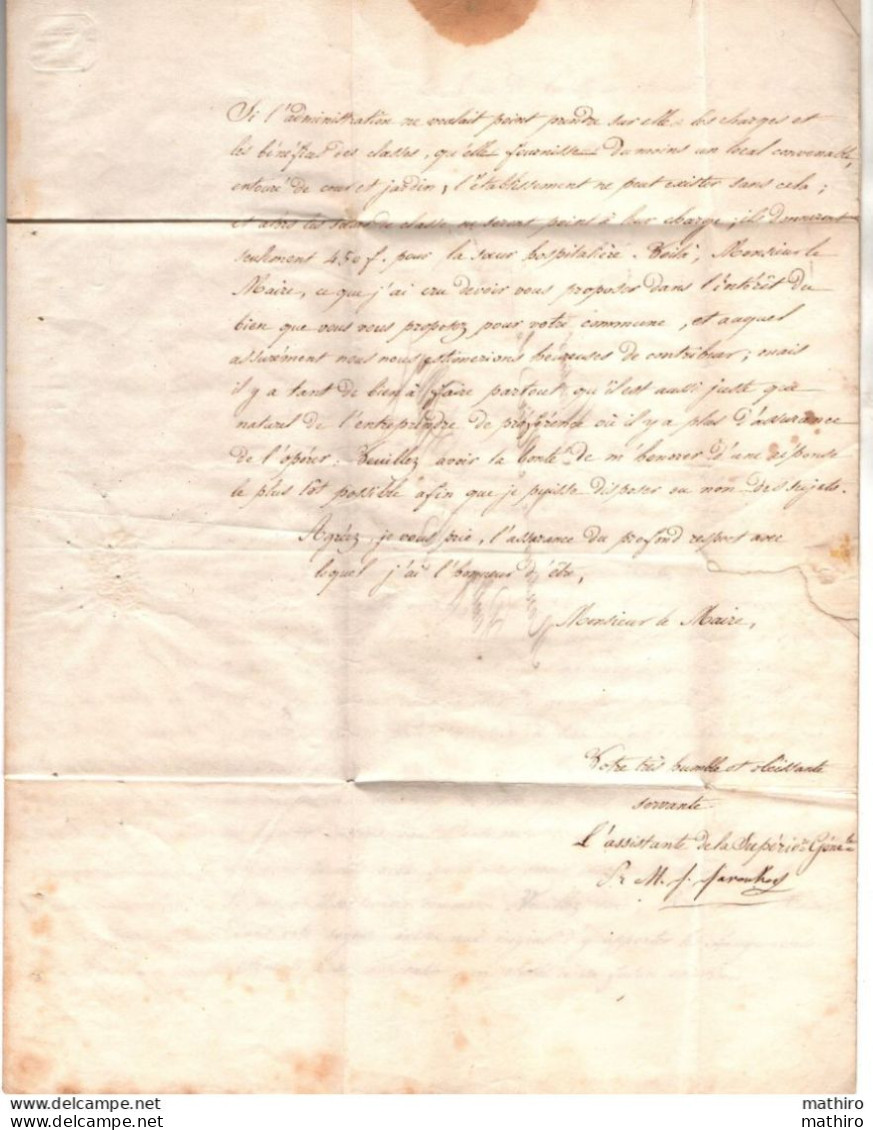 Si l'administration ne voulait point prendre sur elle les charges et
les bénéfices des classes, qu'elle fournisse du moins un local convenable,
entouré de cour et jardin ; l'établissement ne peut exister sans cela ;
et alors les sœurs de classe ne seront point à leur charge ; ils donneront
seulement 450 f. pour la sœur hospitalière. Voilà, Monsieur le
Maire, ce que j'ai cru devoir vous proposer dans l'intérêt du
bien que vous vous proposez pour votre commune, et auquel
assurément nous nous estimerions heureuses de contribuer ; mais
il y a tant de bien à faire partout qu'il est aussi juste que
naturel de l'entreprendre de préférence où il y a plus d'assurance
de l'opérer. Veuillez avoir la bonté de m'honorer d'une réponse
le plus tôt possible afin que je puisse disposer ou non des sujets.
Agréez, je vous prie, l'assurance du profond respect avec
lequel j'ai l'honneur d'être,
Monsieur le Maire,
Votre très humble et obéissante
servante.
L'assistante de la Supérire Génle
Sr M. J.
mathiro
mathiro